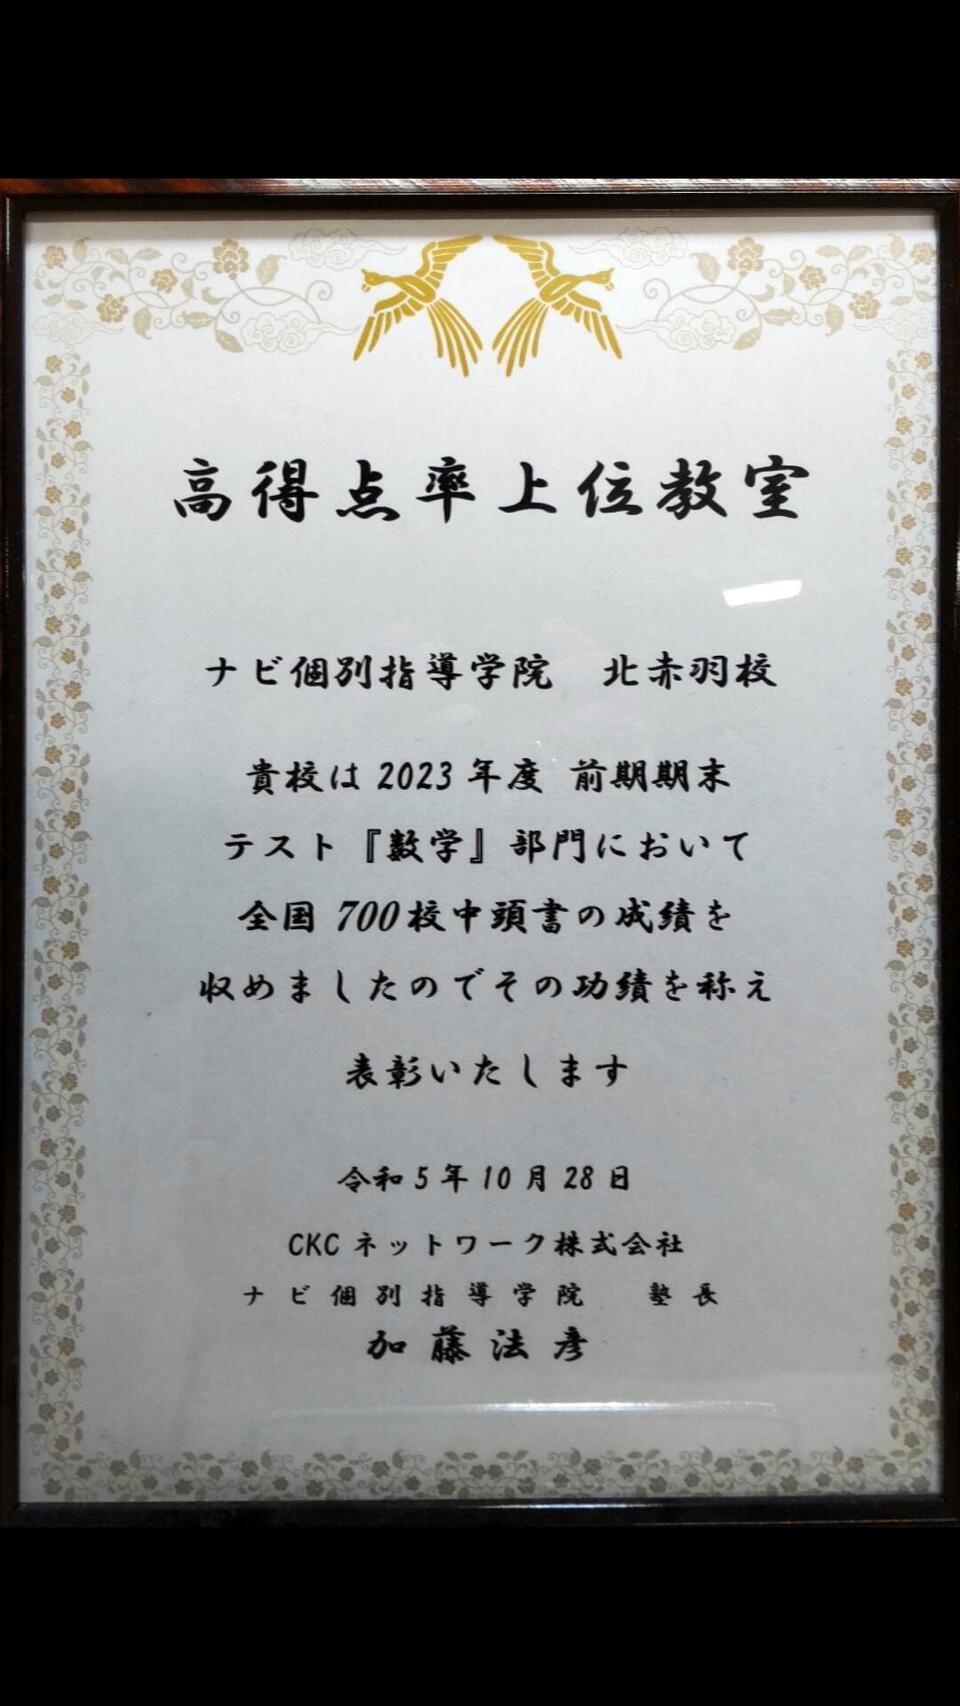 高得点率上位教室
ナビ個別指導学院　北赤羽校
貴校は2023年度 前期期末
テスト『数学』部門において
全国700校中頭書の成績を
収めましたのでその功績を称え
表彰いたします
令和5年10月28日
CKCネットワーク株式会社
ナビ個別指導学院　塾長
加藤法彦